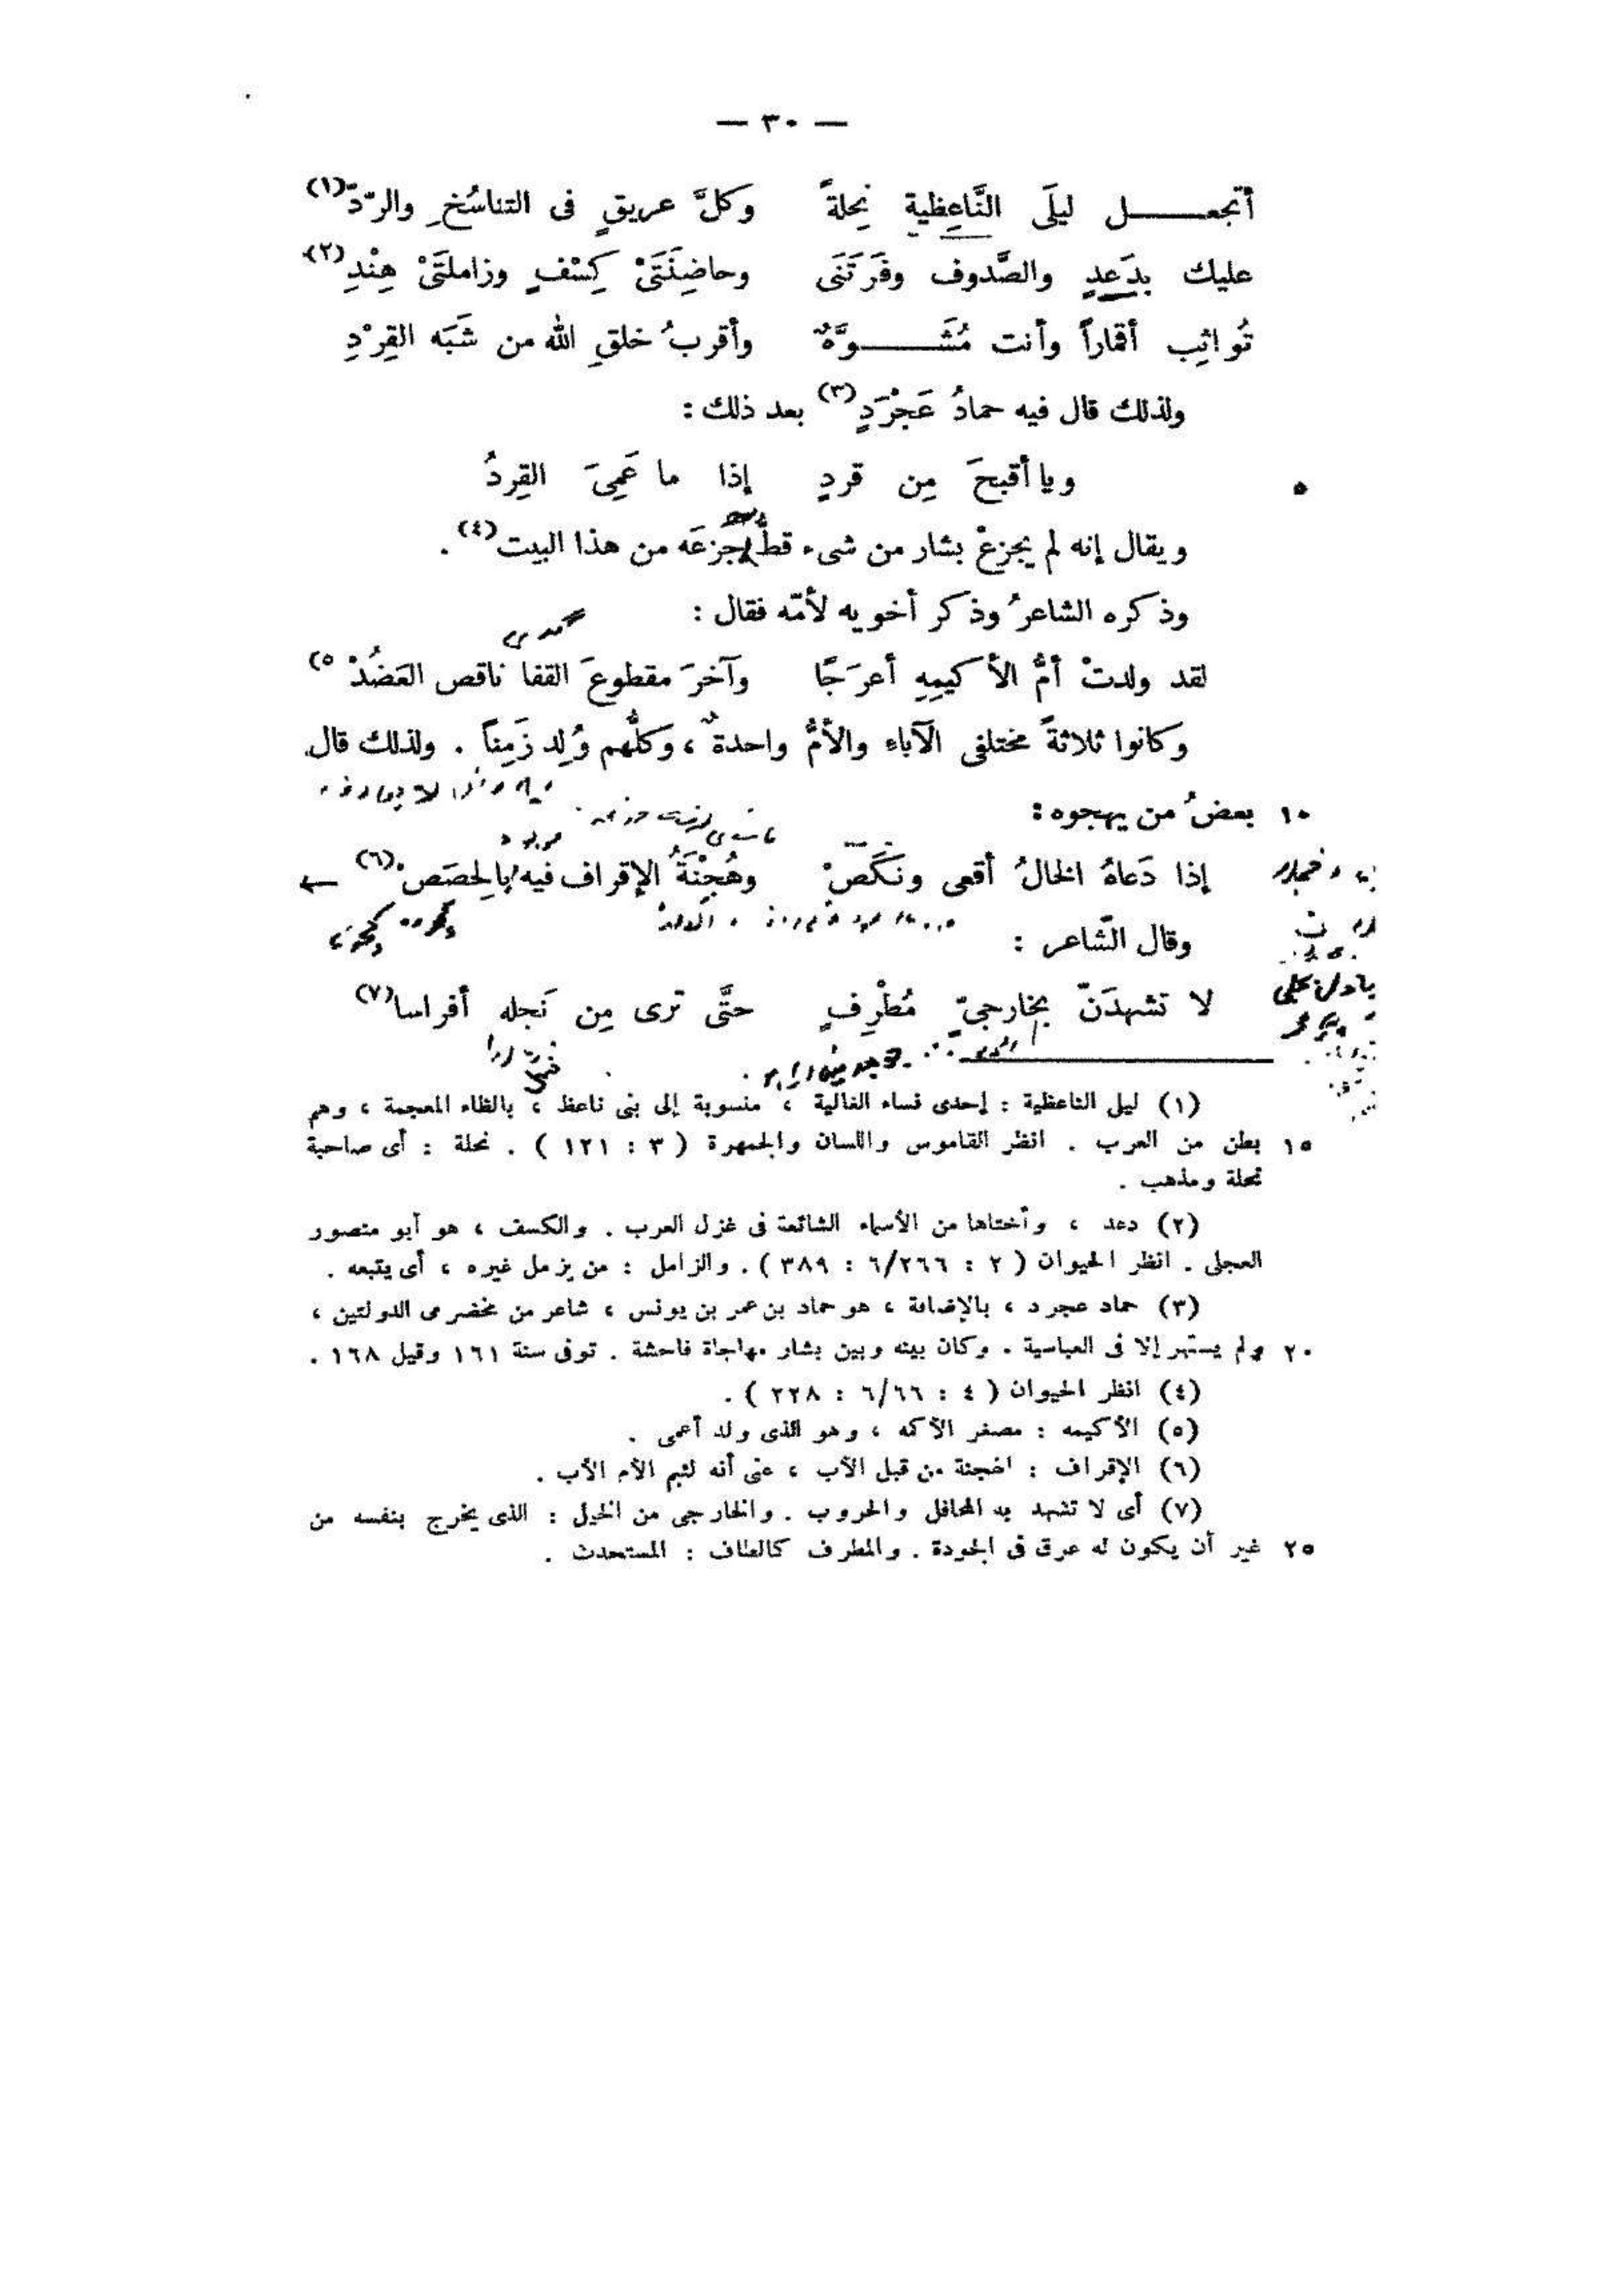 — ٣٠ —
أتجعـــــل ليلَى النَّاعِظية نِحلةً وكلَّ عريقٍ فى التناسُخِ والرّدّ(١)
عليك بدَعدٍ والصَّدوف وفَرْتَنَى وحاضِنَتَىْ كِسْفٍ وزاملتَىْ هِنْدِ(٢)
تُواثِب أقماراً وأنت مُشَـــــوَّهٌ وأقربُ خلقِ الله من شَبَه القِرْدِ
ولذلك قال فيه حمادُ عَجْرَدٍ(٣) بعد ذلك :
٥ ويا أقبحَ مِن قردٍ إذا ما عَمِىَ القِردُ
ويقال إنه لم يجزعْ بشار من شىء قطُّ جَزعَه من هذا البيت(٤) .
وذكره الشاعرُ وذكر أخويه لأمّه فقال :
لقد ولدتْ أمُّ الأكيمِهِ أعرَجًا وآخرَ مقطوعَ القفا ناقص العَضُدْ(٥)
وكانوا ثلاثةً مختلفى الآباء والأمُّ واحدةٌ ، وكلُّهم وُلِد زَمِناً . ولذلك قال
١٠ بعضُ من يهجوه :
إذا دَعاهُ الخالُ أقعى ونَكَصْ وهُجْنَةُ الإقراف فيه بالحِصَصْ(٦)
وقال الشّاعر :
لا تشهدَنّ بخارجىّ مُطْرِفٍ حتَّى ترى مِن نَجله أفراسا(٧)
(١) ليلى الناعظية : إحدى نساء الغالية ، منسوبة إلى بنى ناعظ ، بالظاء المعجمة ، وهم
١٥ بطن من العرب . انظر القاموس واللسان والجمهرة ( ٣ : ١٢١ ) . نحلة : أى صاحبة
نحلة ومذهب .
(٢) دعد ، وأختاها من الأسماء الشائعة فى غزل العرب . والكسف ، هو أبو منصور
العجلى . انظر الحيوان ( ٢ : ٦/٢٦٦ : ٣٨٩ ) . والزامل : من يزمل غيره ، أى يتبعه .
(٣) حماد عجرد ، بالإضافة ، هو حماد بن عمر بن يونس ، شاعر من مخضرمى الدولتين ،
٢٠ ولم يشتهر إلا فى العباسية . وكان بينه وبين بشار مهاجاة فاحشة . توفى سنة ١٦١ وقيل ١٦٨ .
(٤) انظر الحيوان ( ٤ : ٦/٦٦ : ٢٢٨ ) .
(٥) الأكيمه : مصغر الأكمه ، وهو الذى ولد أعمى .
(٦) الإقراف : الهجنة من قبل الأب ، عنى أنه لئيم الأم الأب .
(٧) أى لا تشهد به المحافل والحروب . والخارجى من الخيل : الذى يخرج بنفسه من
٢٥ غير أن يكون له عرق فى الجودة . والمطرف : المستحدث .